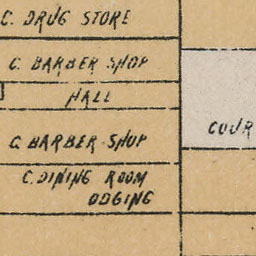 C. DRUG STORE
C. BARBER SHOP
HALL
COUR
C. BARBER SHOP
C. DINING ROOM
ODGING